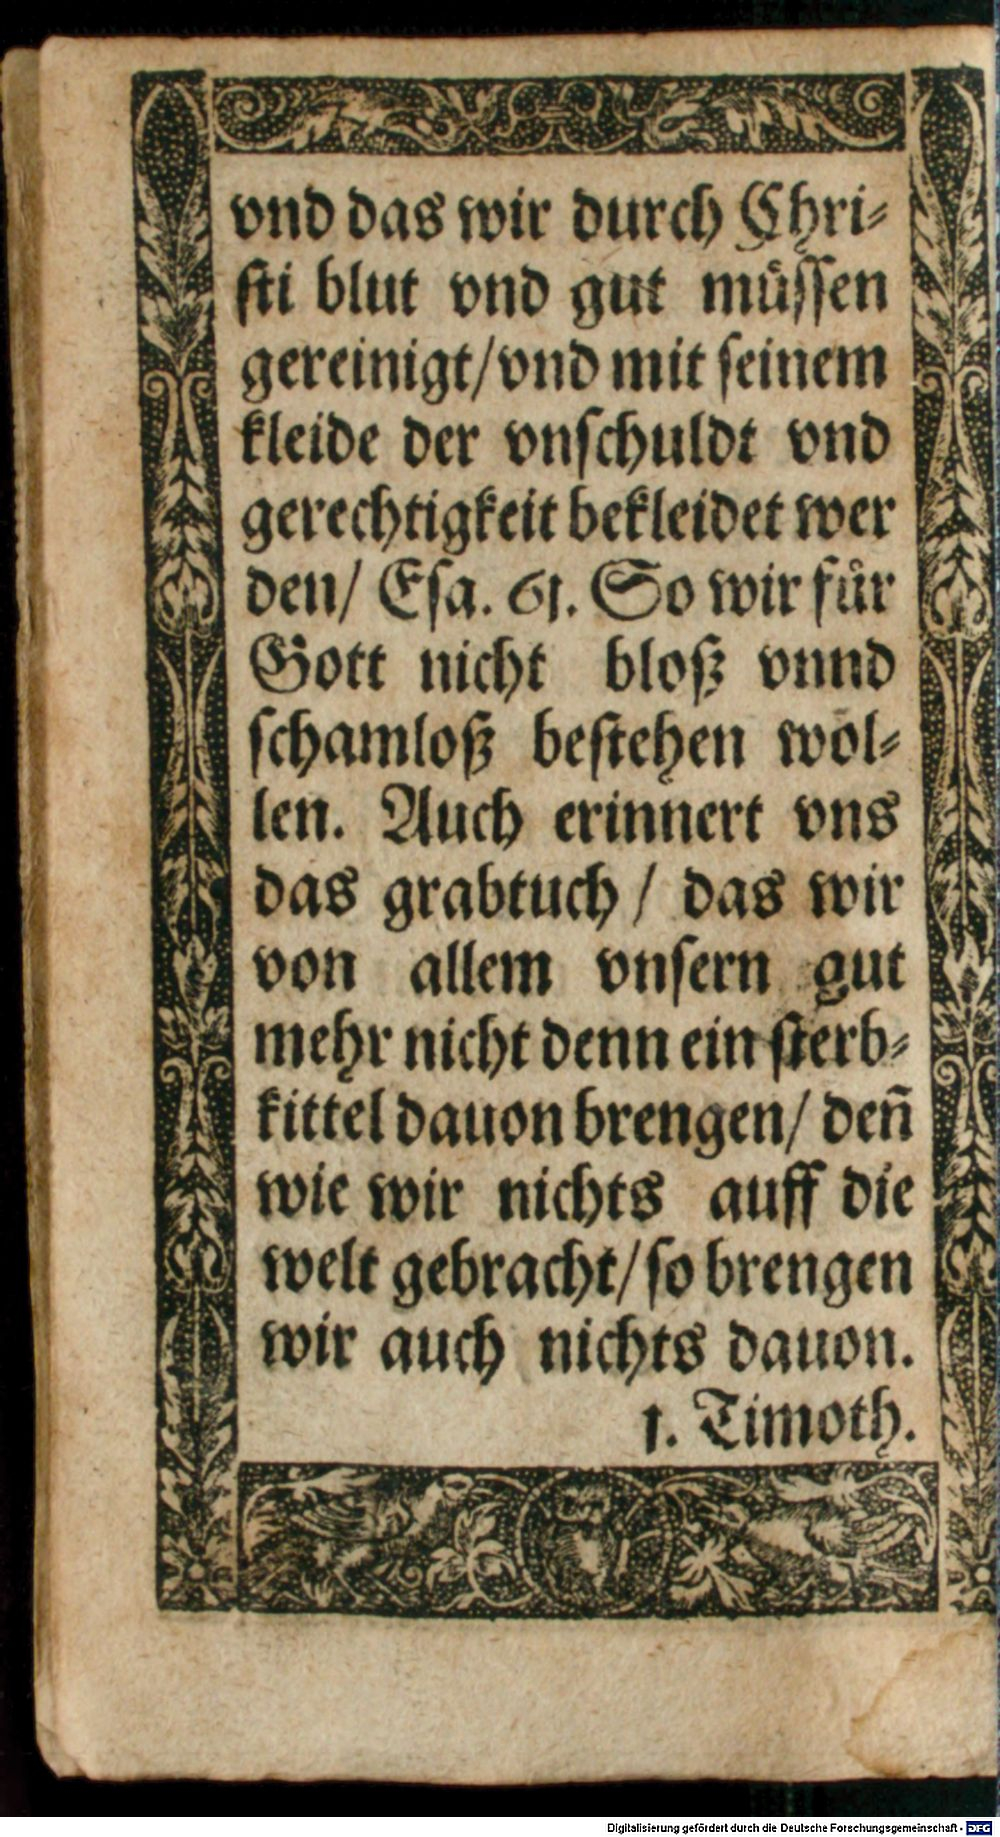 vnd das wir durch Chri⸗
ſti blut vnd gut müſſen
gereinigt/vnd mit ſeinem
kleide der vnſchuldt vnd
gerechtigkeit bekleidet wer
den/ Eſa. 61. So wir für
Gott nicht bloß vnnd
ſchamloß beſtehen wol⸗
len. Auch erinnert vns
das grabtuch/ das wir
von allem vnſern gut
mehr nicht denn ein ſterb⸗
kittel dauon brengen/ deñ
wie wir nichts auff die
welt gebracht/ſo brengen
wir auch nichts dauon.
1. Timoth.
Digitalisierung gefördert durch die Deutsche Forschungsgemeinschaft - DFG